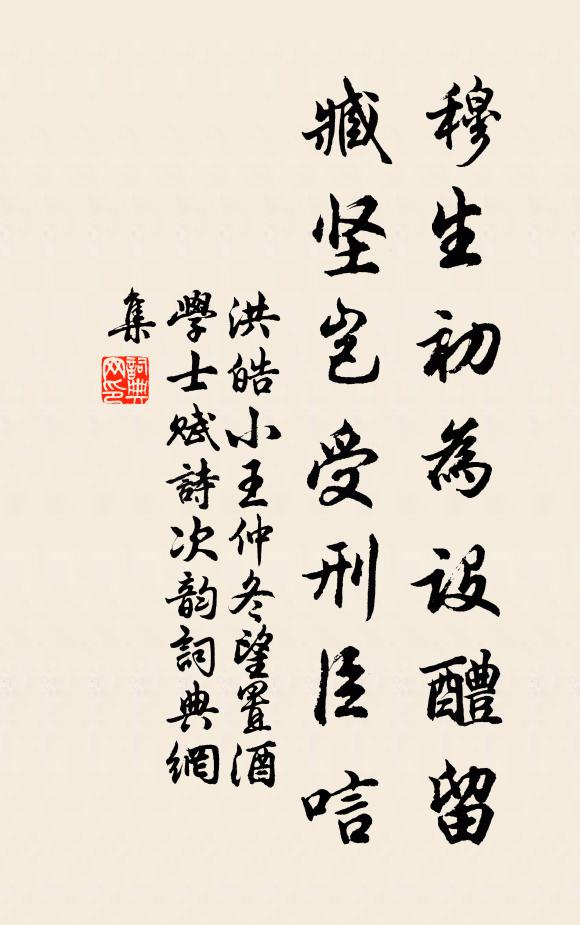 穆生初為設醴留
臧坚岂受刑臣唁
洪皓小王仲冬望置酒
學士赋詩次韵詞典網
集
詞典网印